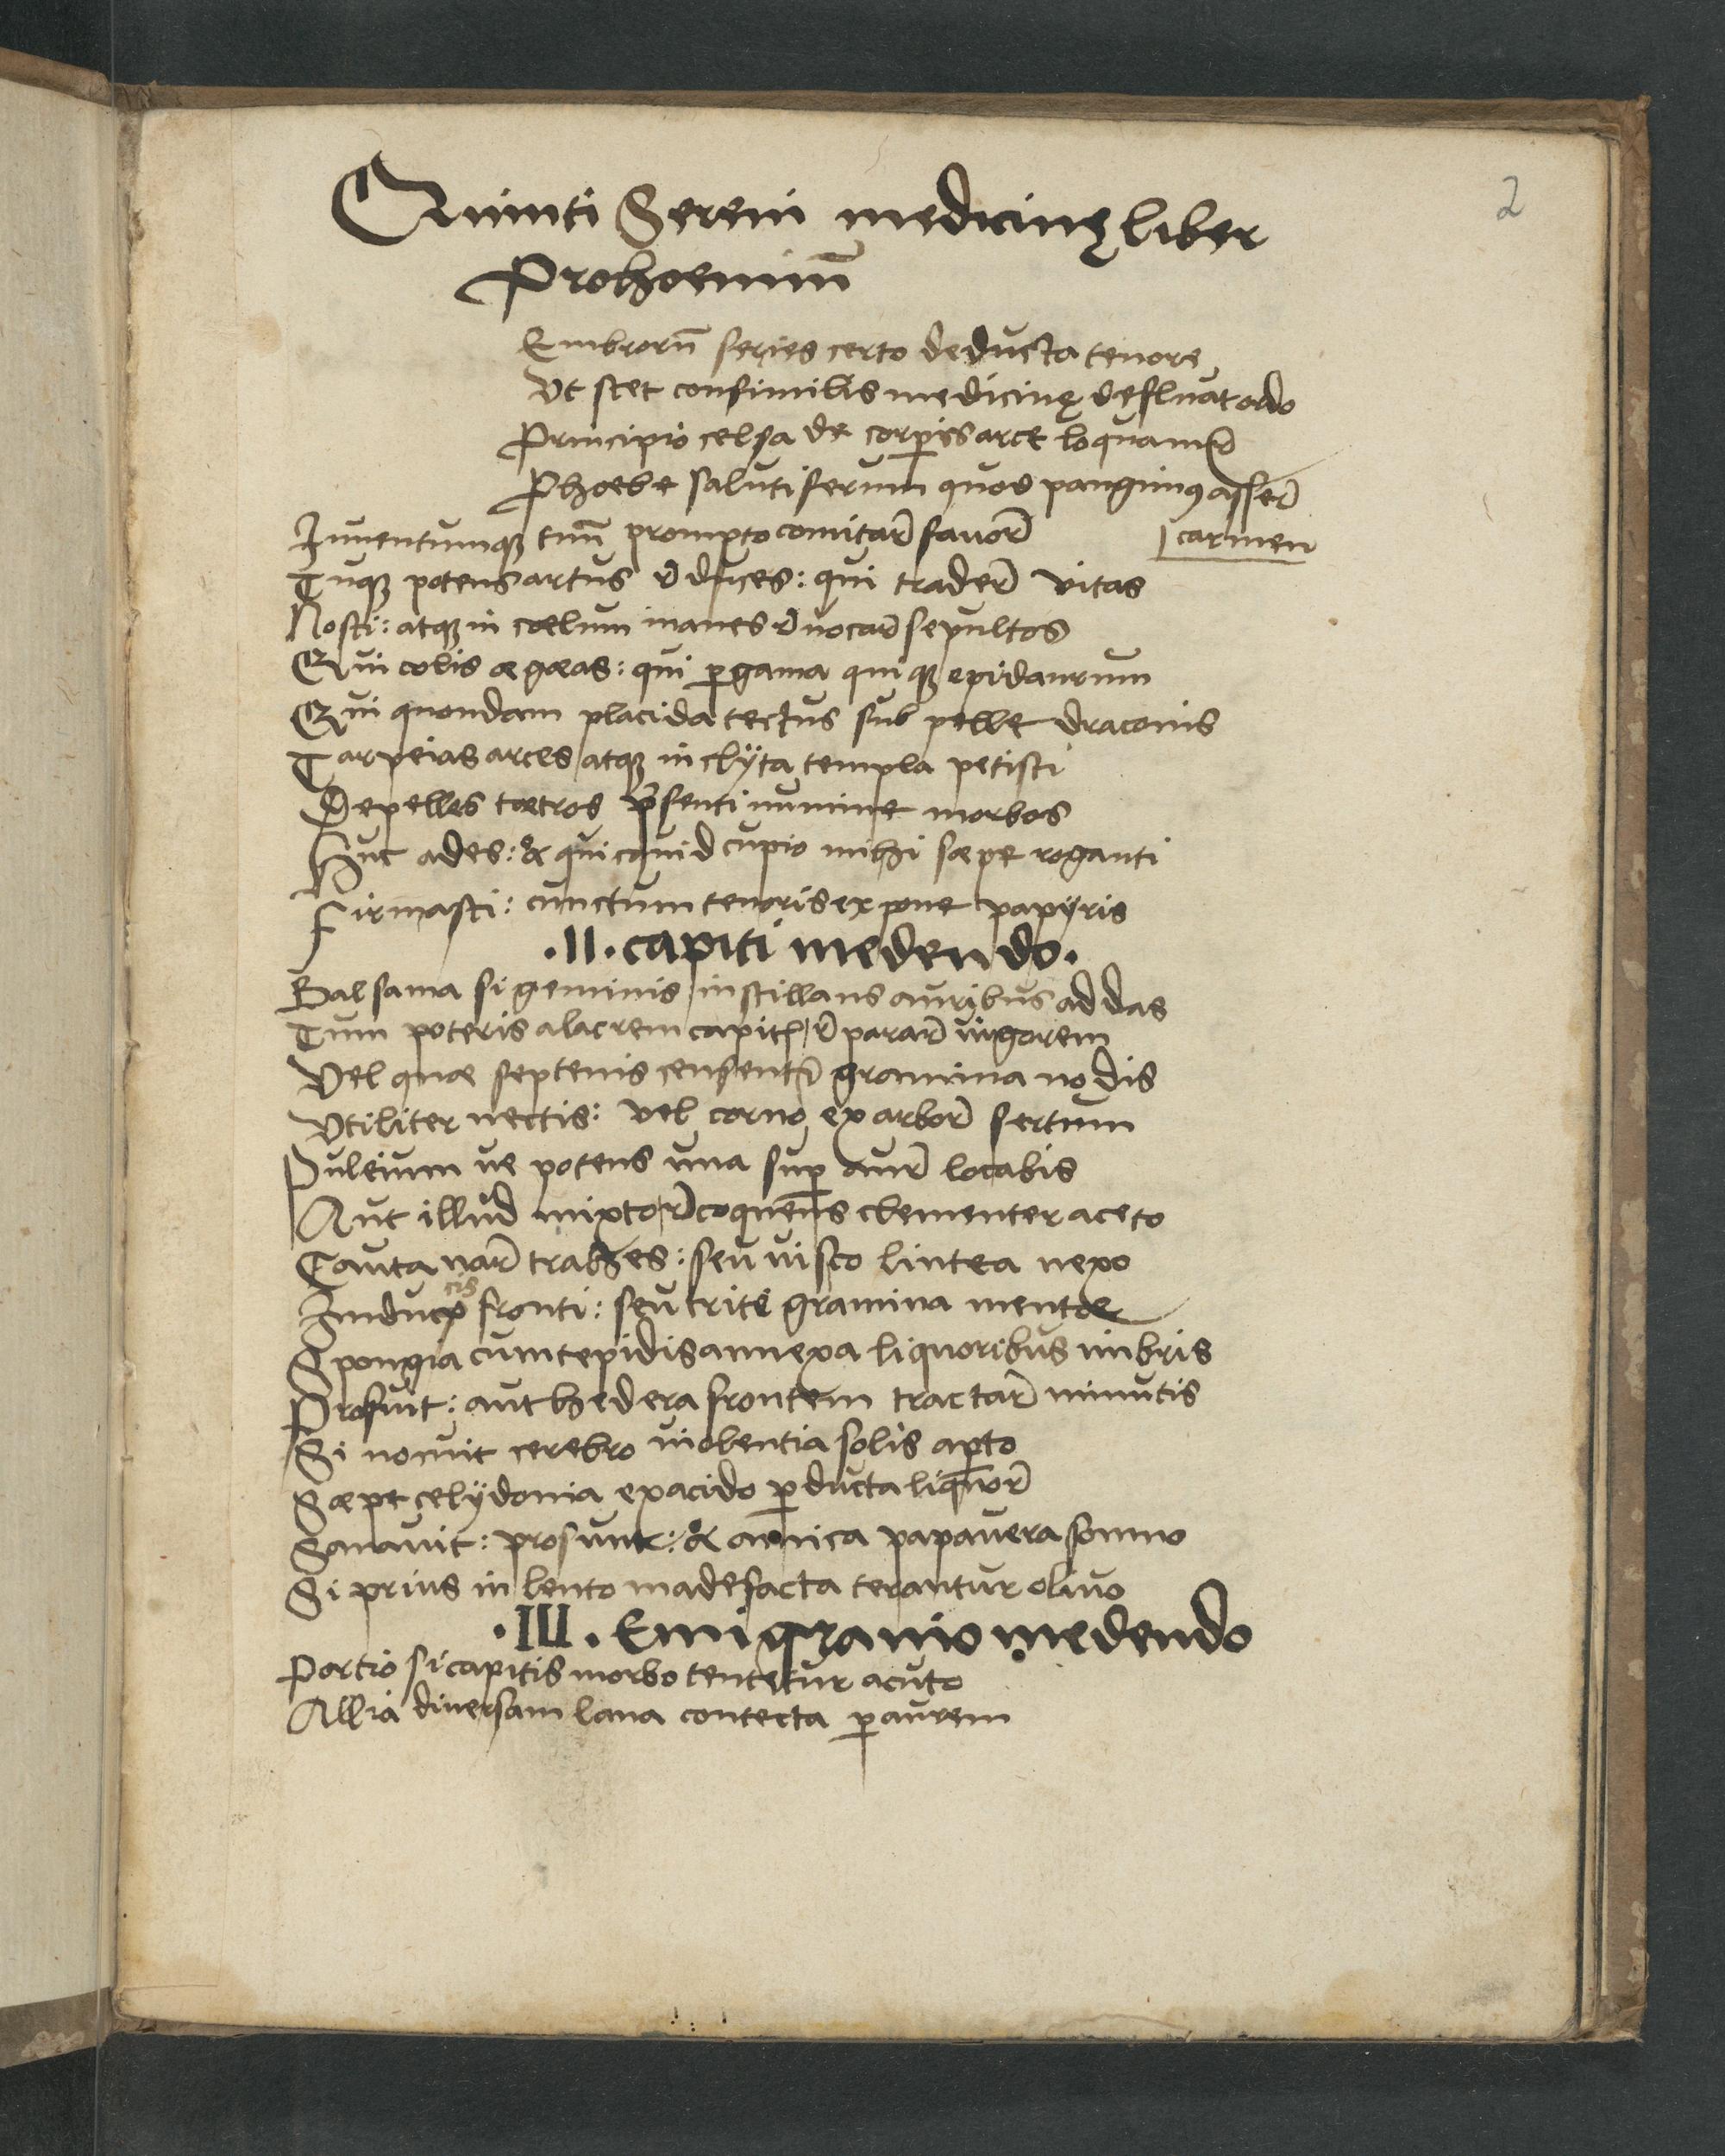 2
Quinti Sereni medicinę liber
Prohoemiū
Embrorū series certo deducta tenore
Vt stet consimilis medicinę defluat ordo
Principio celsa de corꝑis arce loquamur̃
Phoebe salutiferum quod pangimꝰ asser̃
carmen
Inuentumqꝫ tuū prompto comitar̃ fauor̃
Tuqꝫ potens artus r̃duces: qui trader̃ vitas
Nosti: atqꝫ in coelum manes r̃uocar̃ sepultos
Qui colis aegaeas: qui ꝑgama quiqꝫ epidaurum
Qui quondam placida tectus sub pelle draconis
Tarpeias arces atqꝫ inclÿta templa petisti
Depelles taetros p̃senti numine morbos
Huc ades: & quicquid cupio mihi saepe roganti
Firmasti: cunctum tenoris expone papÿris
.II. capiti medendo.
Balsama si geminis instillans auribus addas
Tum poteris alacrem capitꝭ r̃parar̃ uigorem
Vel quae septenis censentur̃ gramina nodis
Vtiliter nectis: vel corno ex arbor̃ sertum
Puleium ue potens una suꝑ aur̃ locabis
Aut illud mixto r̃coquens clementer aceto
Cauta nar̃ trahes: seu uisco lintea nexo
cis
Induces fronti: seu trite gramina mentae
Spongia cum tepidis annexa liquoribus imbris
Profuit: aut hedera frontem tractar̃ minutis
Si nocuit cerebro uiolentia solis aꝑto
Saepe celÿdonia ex acido ꝑducta liquor̃
Sanauit: prosunt: & amica papauera somno
Si prius in lento madefacta terantur oliuo
.III. Emigranio medendo
Portio si capitis morbo tentetur acuto
Allia diuersam lana contecta ꝑ aurem